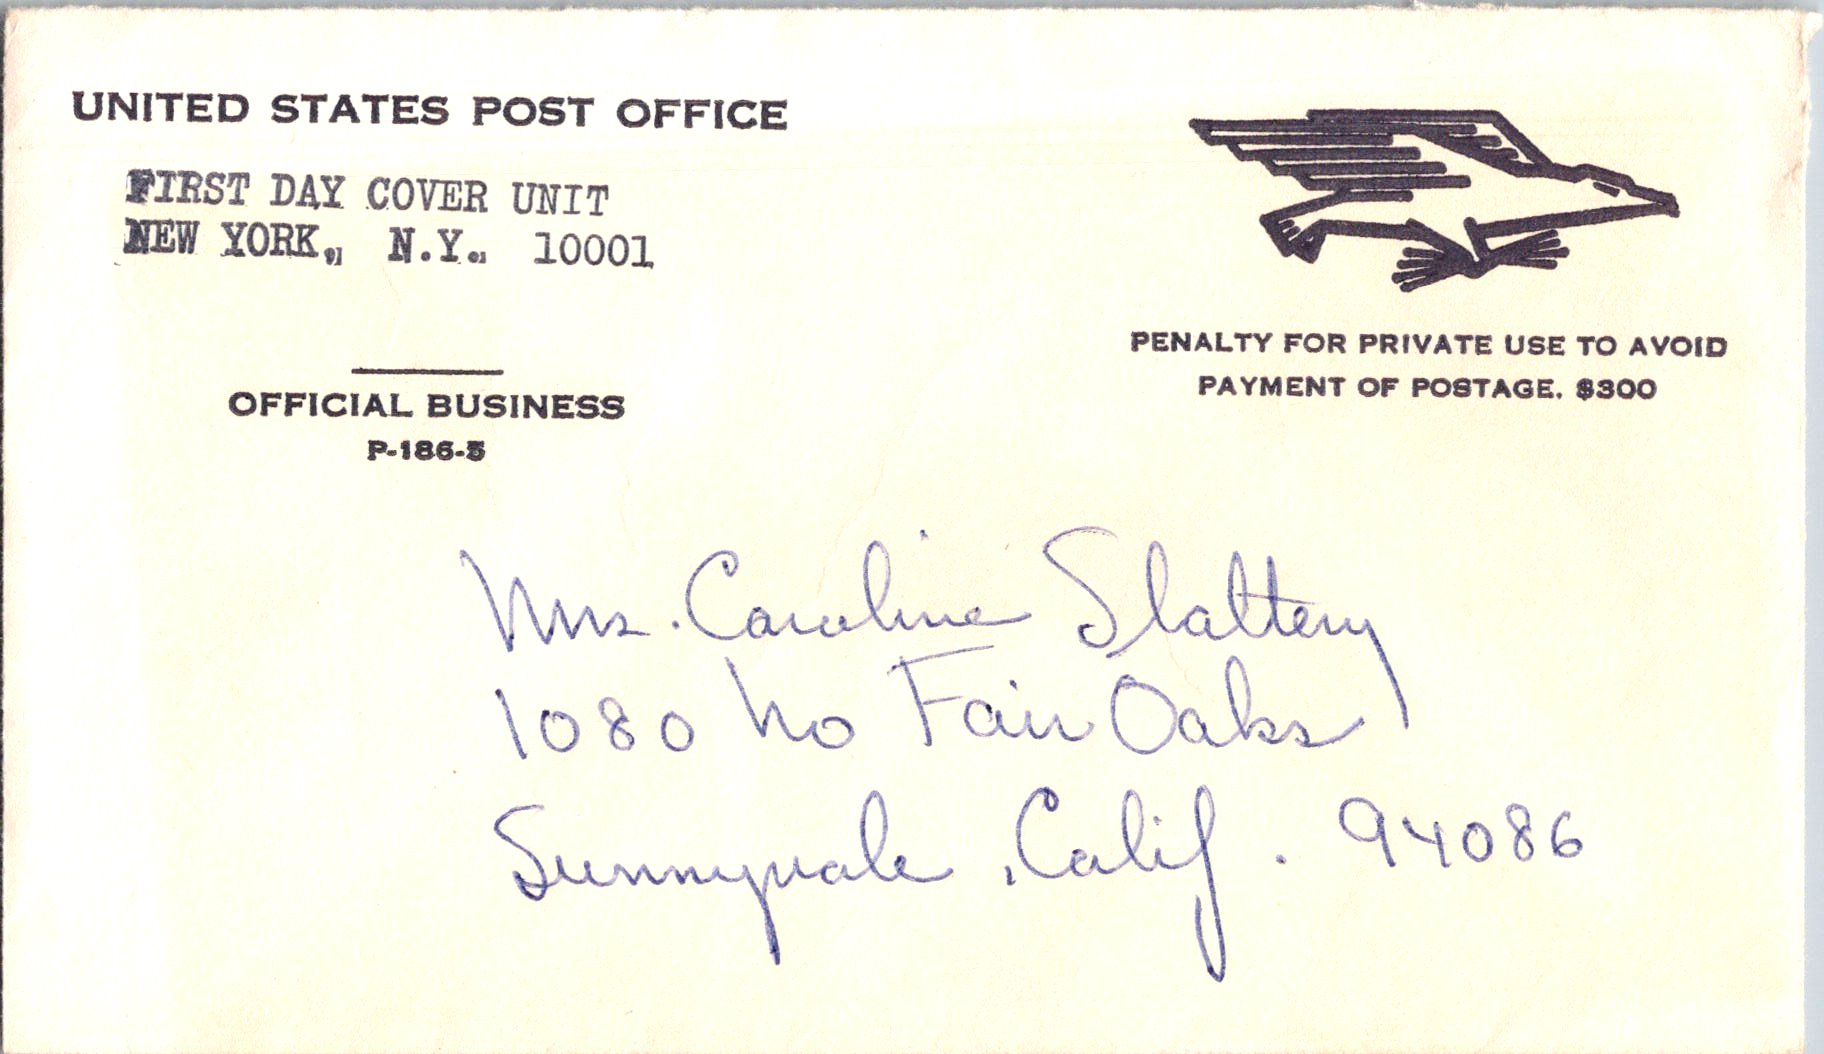 UNITED STATES POST OFFICE
FIRST DAY COVER UNIT
NEW YORK, N.Y. 10001
OFFICIAL BUSINESS
P-186-5
PENALTY FOR PRIVATE USE TO AVOID
PAYMENT OF POSTAGE. $300
Mrs. Caroline Slattery
1080 No Fair Oaks
Sunnyvale, Calif. 94086